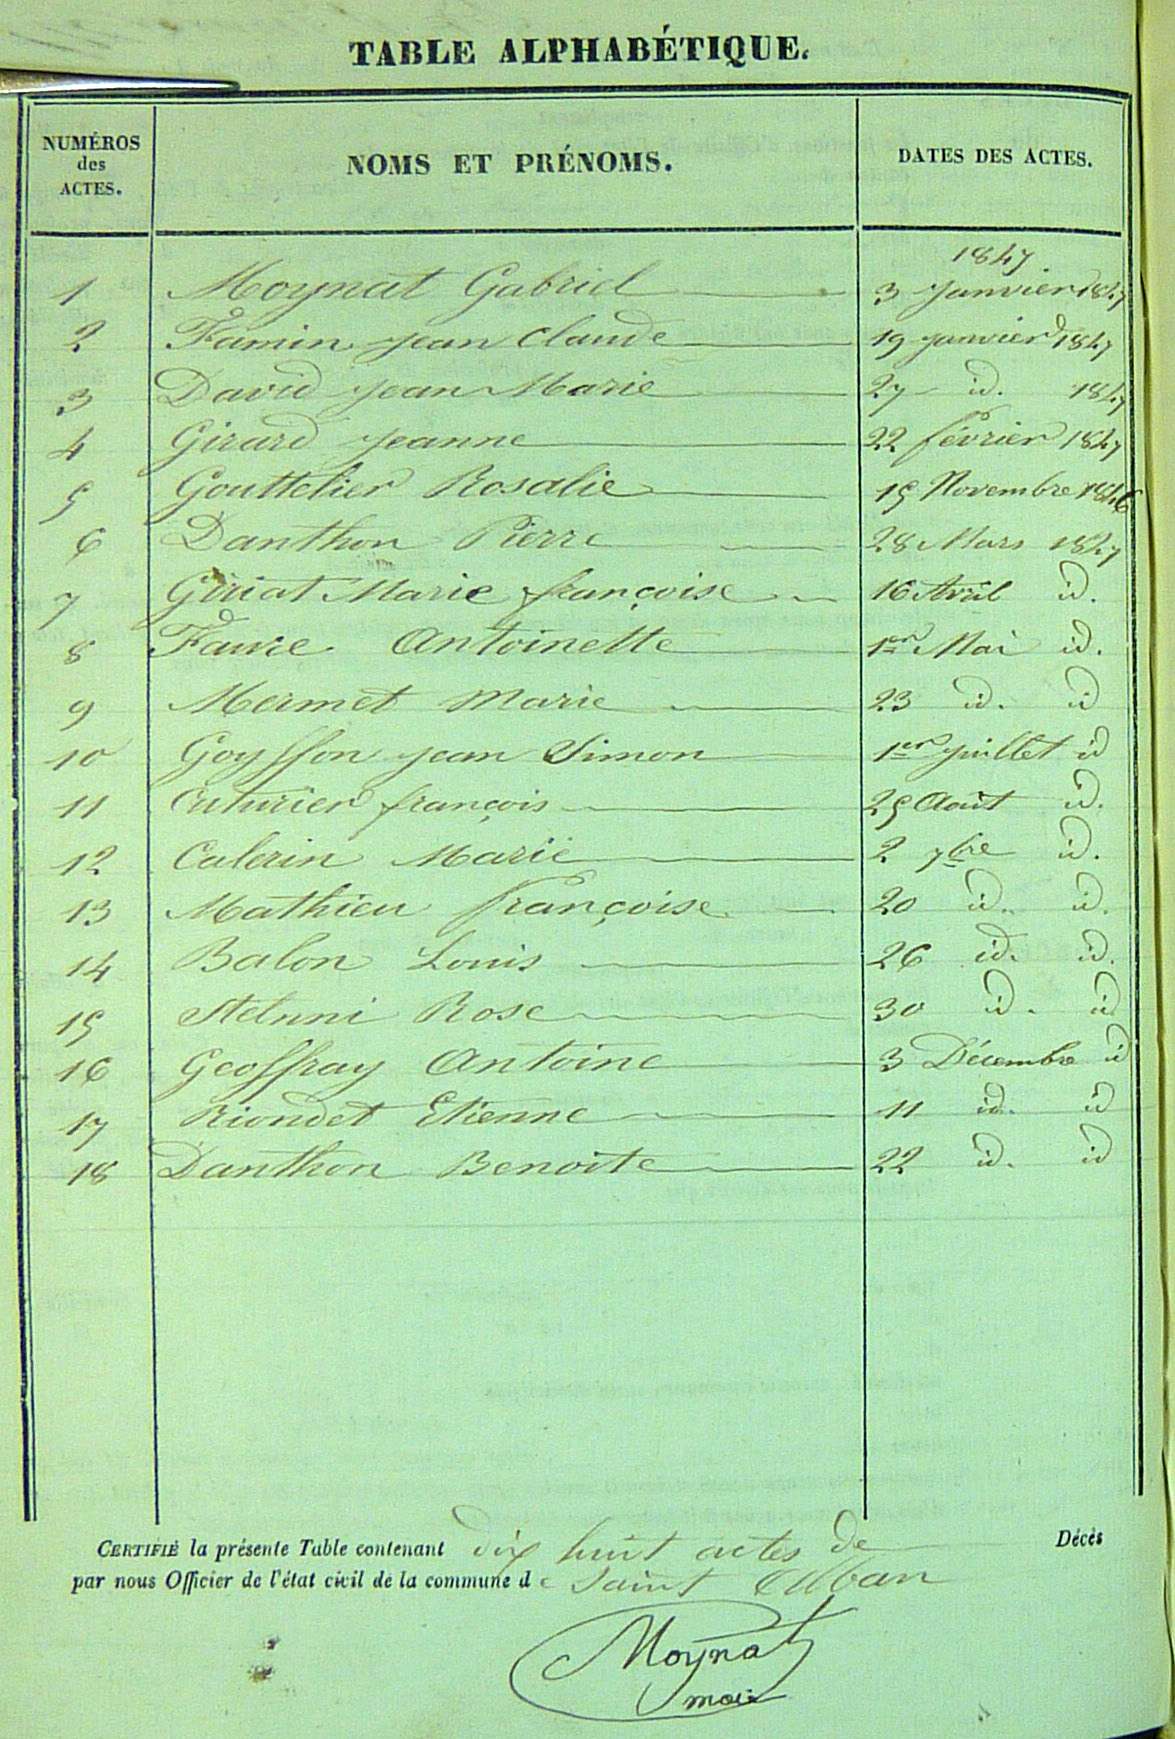 TABLE ALPHABÉTIQUE.
NUMÉROS des ACTES. NOMS ET PRÉNOMS. DATES DES ACTES.
1847
1 Moynat Gabriel 3 Janvier 1847
2 Famin Jean Claude 19 janvier 1847
3 David Jean Marie 27 id. 1847
4 Girard Jeanne 22 février 1847
5 Gouttelier Rosalie 15 Novembre 1846
6 Danthon Pierre 28 Mars 1847
7 Giriat Marie françoise 16 Avril id.
8 Favre Antoinette 1er Mai id.
9 Mermet Marie 23 id. id
10 Goyffon Jean Simon 1er Juillet id
11 Cuturier françois 25 Août id.
12 Calerin Marie 2 7bre id.
13 Mathieu françoise 20 id. id.
14 Balon Louis 26 id. id.
15 Rose 30 id. id
16 Geoffray Antoine 3 Décembre id
17 Riondet Etienne 11 id. id
18 Danthon Benoite 22 id. id
CERTIFIÉ la présente Table contenant dix huit actes de Décès
par nous Officier de l'état civil de la commune de Saint Alban
Moynat
maire